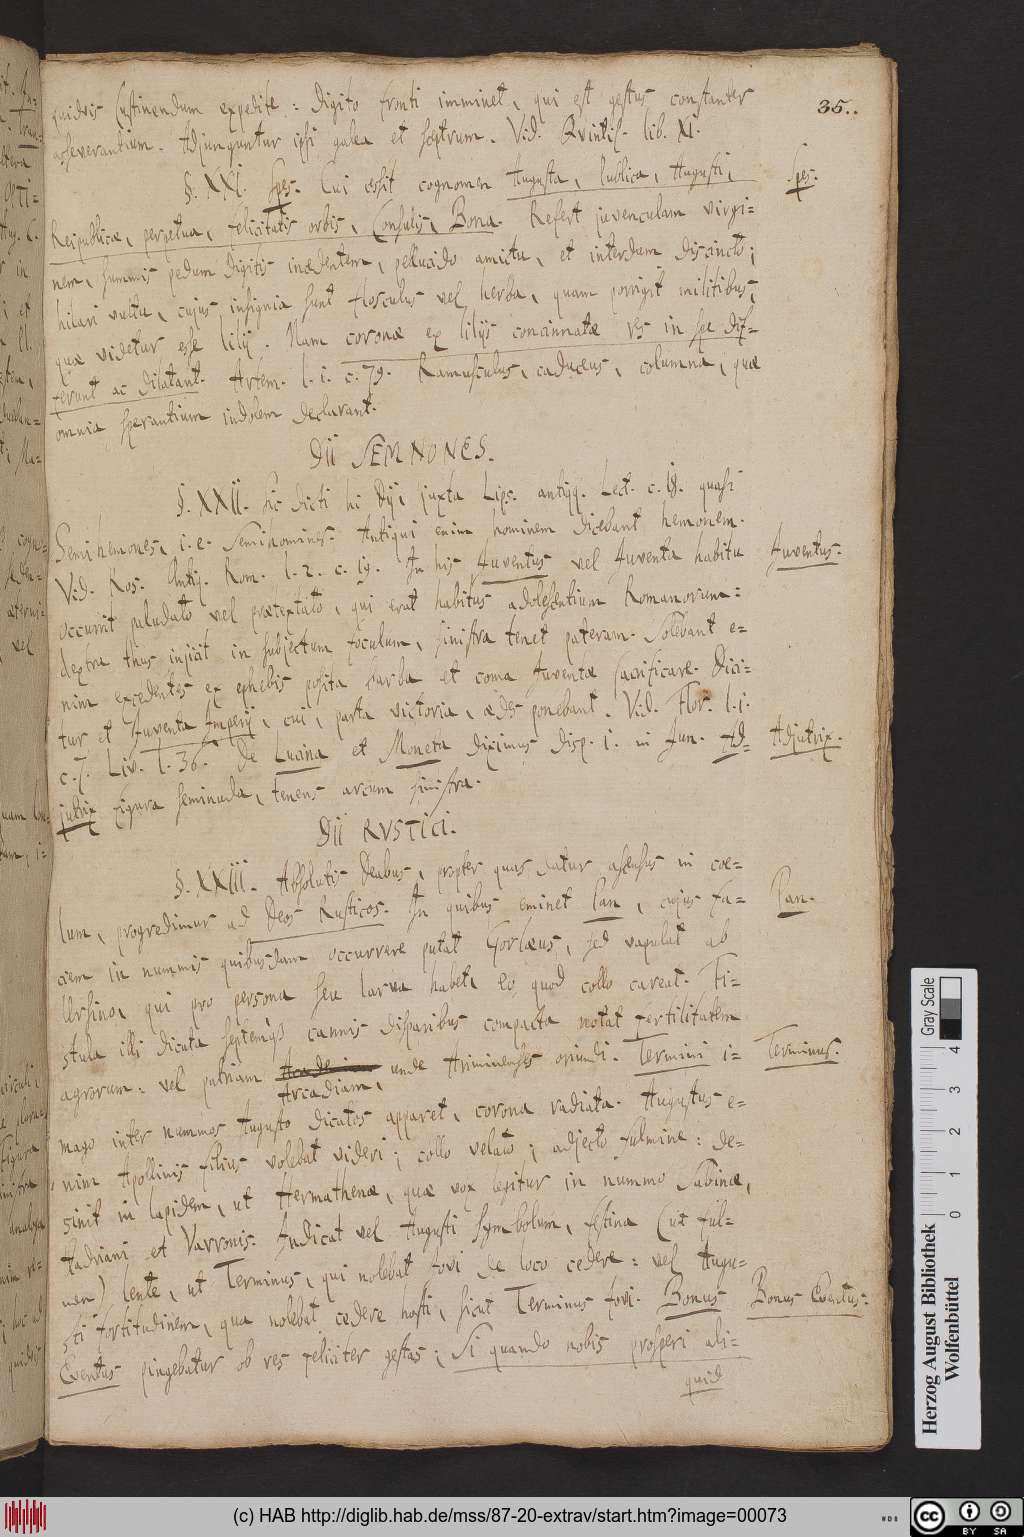 35..
quidvis sustinendum expedite : digito fronti imminet, qui est gestus constanter
asseverantium. Adjunguntur ipsi galea et sceptrum. Vid. Qvintil. lib. XI.
§. XXI. Spes. Cui cessit cognomen Augusta, Publica, Augusti, Spes.
Reipublicæ, perpetua, felicitatis orbis, Consulis, Bona. Refert juvenculam virgi=
nem, summis pedum digitis incedentem, pellucido amictu, et interdum discincto;
hilari vultu, cujus insignia sunt flosculus vel herba, quam porrigit militibus;
quæ videtur esse lilij. Nam coronæ ex lilijs concinnatæ res in spe dif=
ferunt ac dilatant. Artem. l. 1. c. 79. Ramusculus, caduceus, columna, quæ
omnia sperantium indolem declarant.
DII SEMNONES.
§. XXII. Sic dicti hi Dij, juxta Lips. antiqq. Lect. c. 18. quasi
Semihemones, i. e. Semihomines. Antiqui enim hominem dicebant hemonem.
Vid. Ros. Antiq. Rom. l. 2. c. 19. In his Juventus vel Juventa habitu Juventus.
occurrit paludato vel prætextato, qui erat habitus adolescentium Romanorum:
dextra thus injicit in subjectum foculum, sinistra tenet pateram. Solebant e=
nim excedentes ex ephebis posita barba et coma Juventæ sacrificare. Dici=
tur et Juventa Imperij, cui, parta victoria, ædes ponebant. Vid. Flor. l. 1.
c. 7. Liv. l. 36. De Lucina et Moneta diximus disp. 1. in Jun. Ad= Adjutrix.
jutrix figura seminuda, tenens arcum sinistra.
DII RVSTICI.
§. XXIII. Absolutis Deabus, propter quas datur ascensus in cœ=
lum, progredimur ad Deos Rusticos. In quibus eminet Pan, cujus fa= Pan.
ciem in nummis quibusdam occurrere putat Gorlæus, sed vapulat ab
Ursino, qui pro persona seu larva habet, eo quod collo careat. Fi=
stula illi dicata septemis cannis disparibus compacta notat fertilitatem
agrorum: vel patriam Arcadiam, unde Ariminenses oriundi. Termini i= Terminus.
mago inter nummos Augusto dicatos apparet, corona radiata. Augustus e=
nim Apollinis filius volebat videri; collo velato; adjecto fulmine: de=
sinit in lapidem, ut Hermathenæ, quæ vox legitur in nummo Sabinæ,
Hadriani et Varronis. Indicat vel Augusti symbolum, festina (ut ful=
men) lente, ut Terminus, qui nolebat Jovi de loco cedere: vel Augu=
sti fortitudinem, qua nolebat cedere hosti, sicut Terminus Jovi. Bonus Bonus Eventus.
Eventus pingebatur ob res feliciter gestas; Si quando nobis prosperi ali=
quid
Herzog August Bibliothek
Wolfenbüttel
Gray Scale
0 1 2 3 4
(c) HAB http://diglib.hab.de/mss/87-20-extrav/start.htm?image=00073
cc BY SA